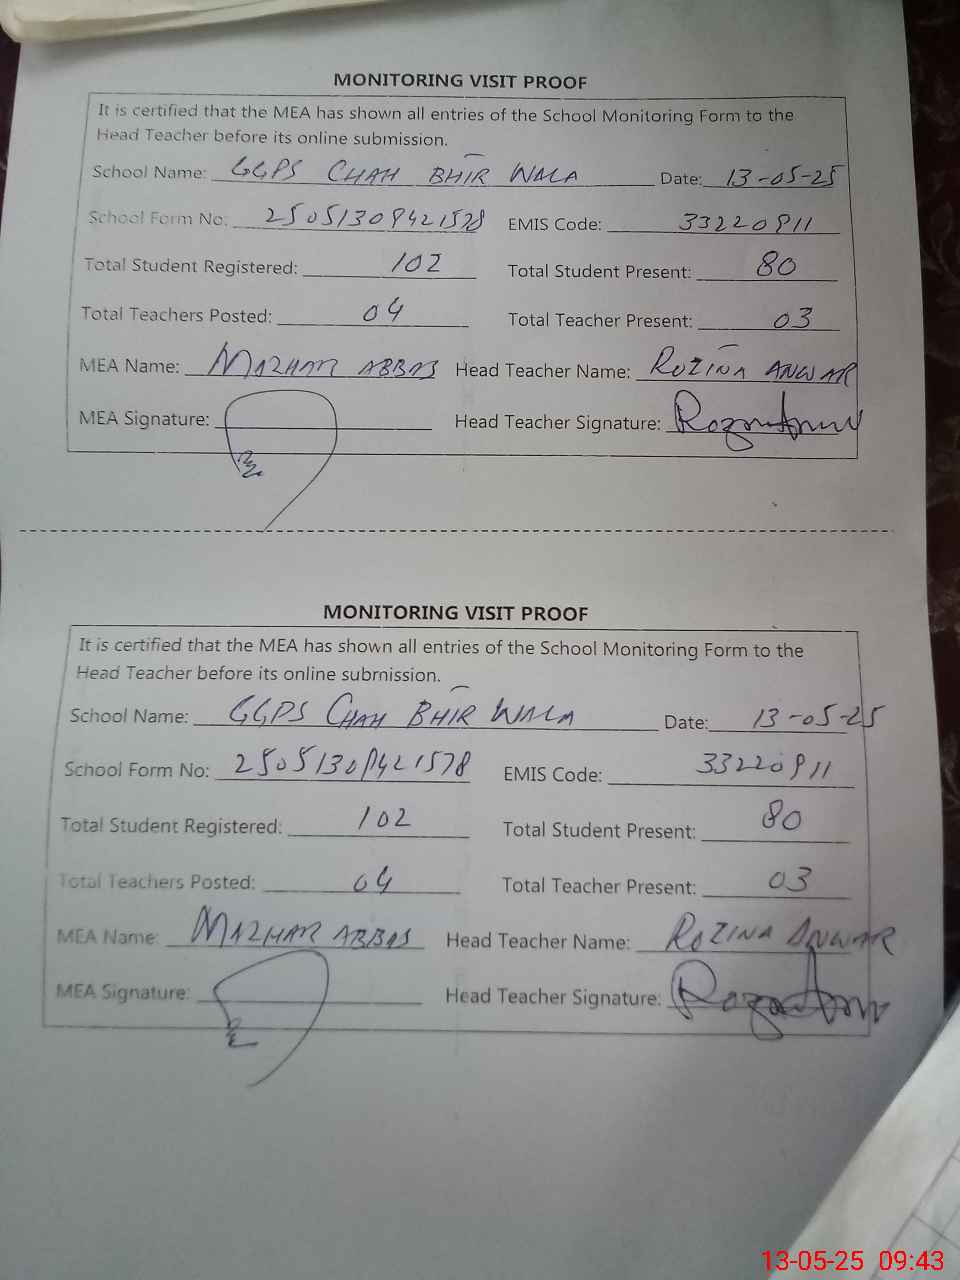 MONITORING VISIT PROOF
It is certified that the MEA has shown all entries of the School Monitoring Form to the
Head Teacher before its online submission.
School Name: GGPS CHAH BHIR WALA Date: 13-05-25
School Form No: 25051309421578 EMIS Code: 33220911
Total Student Registered: 102 Total Student Present: 80
Total Teachers Posted: 04 Total Teacher Present: 03
MEA Name: MAZHAR ABBAS Head Teacher Name: ROZINA ANWAR
MEA Signature: Head Teacher Signature:
MONITORING VISIT PROOF
It is certified that the MEA has shown all entries of the School Monitoring Form to the
Head Teacher before its online submission.
School Name: GGPS CHAH BHIR WALA Date: 13-05-25
School Form No: 25051309421578 EMIS Code: 33220911
Total Student Registered: 102 Total Student Present: 80
Total Teachers Posted: 04 Total Teacher Present: 03
MEA Name: MAZHAR ABBAS Head Teacher Name: ROZINA ANWAR
MEA Signature: Head Teacher Signature:
13-05-25 09:43